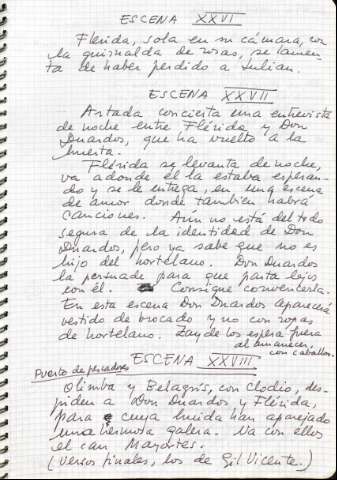 ESCENA XXVI
Flérida, sola en su cámara, con
la guirnalda de rosas, se lamen-
ta de haber perdido a Julián.
ESCENA XXVII
Artada concierta una entrevista
de noche entre Flérida y Don
Duardos, que ha vuelto a la
huerta.
Flérida se levanta de noche,
va adonde él la estaba esperan-
do y se le entrega, en una escena
de amor donde también habrá
canciones. Aún no está del todo
segura de la identidad de Don
Duardos, pero ya sabe que no es
hijo del hortelano. Don Duardos
la persuade para que parta lejos
con él. Consigue convencerla.
En esta escena Don Duardos aparecerá
vestido de brocado y no con ropas
de hortelano. Zayde los espera fuera
al amanecer,
con caballos.
ESCENA XXVIII
Puerto de pescadores
Olimba y Belagrís, con Clodio, des-
piden a Don Duardos y Flérida,
para cuya huida han aparejado
una hermosa galera. Va con ellos
el can Mayortes.
(Versos finales, los de Gil Vicente.)